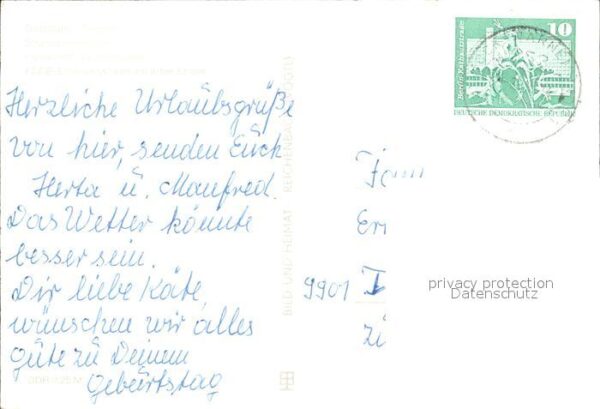 Herzliche Urlaubsgrüße
von hier, senden Euch
Herta u. Manfred.
Das Wetter könnte
besser sein.
Dir liebe Käte,
wünschen wir alles
gute zu Deinem
Geburtstag
BILD UND HEIMAT REICHENBACH
10
DEUTSCHE DEMOKRATISCHE REPUBLIK
Fam
Er
9901
privacy protection
Datenschutz